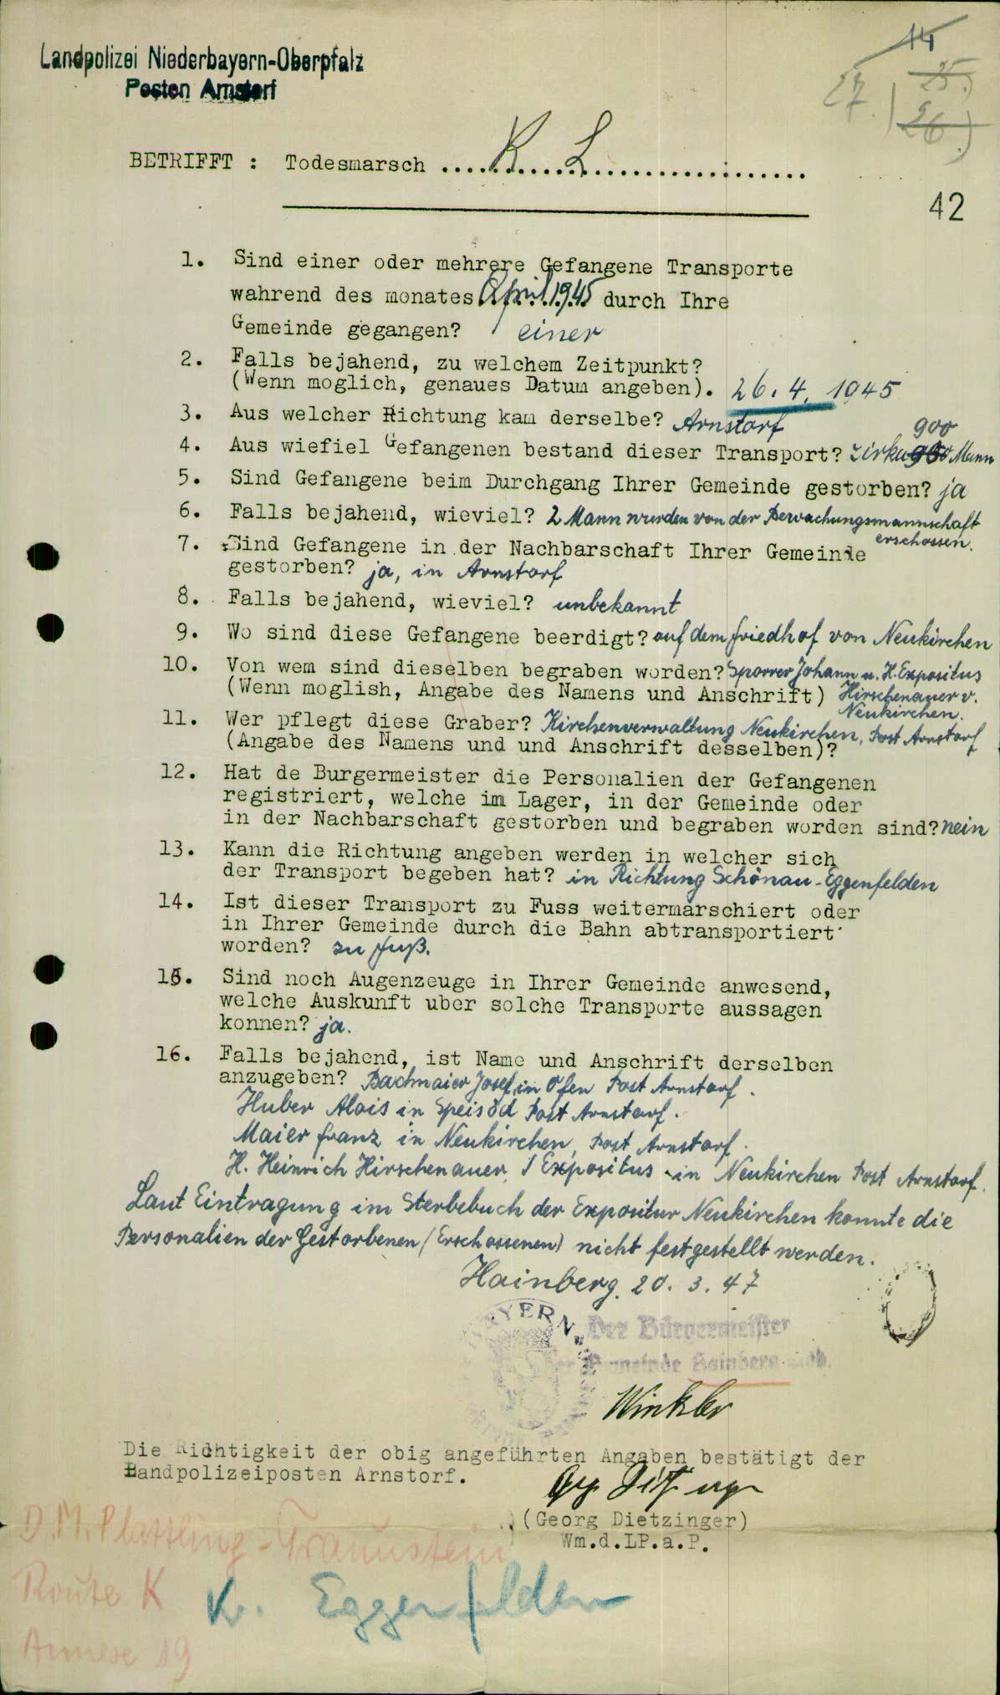 Landpolizei Niederbayern-Oberpfalz
Posten Arnstorf
14
25.
26.)
27.
BETRIFFT : Todesmarsch ....K...L..............................
42
1. Sind einer oder mehrere Gefangene Transporte
wahrend des monates April 1945 durch Ihre
Gemeinde gegangen? einer
2. Falls bejahend, zu welchem Zeitpunkt?
(Wenn moglich, genaues Datum angeben). 26.4.1945
3. Aus welcher Richtung kam derselbe? Arnstorf
900
4. Aus wiefiel Gefangenen bestand dieser Transport? zirka Mann
5. Sind Gefangene beim Durchgang Ihrer Gemeinde gestorben? ja
6. Falls bejahend, wieviel? 2 Mann wurden von der Bewachungsmannschaft
erschossen.
7. Sind Gefangene in der Nachbarschaft Ihrer Gemeinde
gestorben? ja, in Arnstorf
8. Falls bejahend, wieviel? unbekannt
9. Wo sind diese Gefangene beerdigt? auf dem Friedhof von Neukirchen
10. Von wem sind dieselben begraben worden? Sporrer Johann u. H. Expositus
(Wenn moglish, Angabe des Namens und Anschrift) Hirschenauer v.
Neukirchen.
11. Wer pflegt diese Graber? Kirchenverwaltung Neukirchen, Post Arnstorf
(Angabe des Namens und und Anschrift desselben)?
12. Hat de Burgermeister die Personalien der Gefangenen
registriert, welche im Lager, in der Gemeinde oder
in der Nachbarschaft gestorben und begraben worden sind? nein
13. Kann die Richtung angeben werden in welcher sich
der Transport begeben hat? in Richtung Schönau-Eggenfelden
14. Ist dieser Transport zu Fuss weitermarschiert oder
in Ihrer Gemeinde durch die Bahn abtransportiert
worden? zu fuß.
15. Sind noch Augenzeuge in Ihrer Gemeinde anwesend,
welche Auskunft uber solche Transporte aussagen
konnen? ja.
16. Falls bejahend, ist Name und Anschrift derselben
anzugeben? Bachmaier Josef in Ofen Post Arnstorf.
Huber Alois in Speisöd Post Arnstorf.
Maier Franz in Neukirchen, Post Arnstorf.
H. Heinrich Hirschenauer, Expositus in Neukirchen Post Arnstorf.
Laut Eintragung im Sterbebuch der Expositur Neukirchen konnte die
Personalien der Gestorbenen (Erschossenen) nicht festgestellt werden.
Hainberg, 20.3.47
BAYERN
Der Bürgermeister
der Gemeinde Hainberg
Winkler
Die Richtigkeit der obig angeführten Angaben bestätigt der
Landpolizeiposten Arnstorf.
(Georg Dietzinger)
Wm.d.LP.a.P.
D.M. Plattling-Traunstein
Route K
Annexe 19
Kr. Eggenfelden